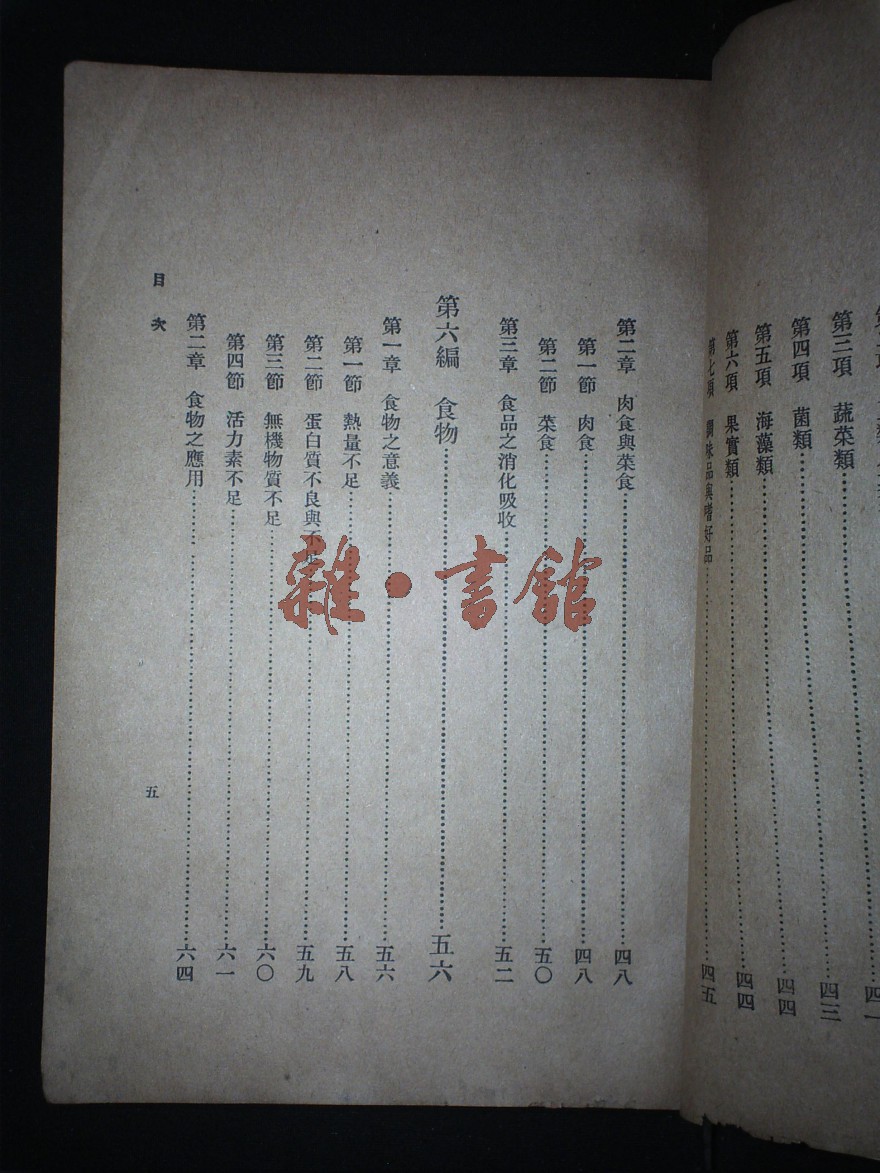 第三項 蔬菜類……四三
第四項 菌類……四四
第五項 海藻類……四四
第六項 果實類……四四
第七項 調味品與嗜好品……四五
第二章 肉食與菜食……四八
第一節 肉食……四八
第二節 菜食……五〇
第三章 食品之消化吸收……五二
第六編 食物……五六
第一章 食物之意義……五六
第一節 熱量不足……五八
第二節 蛋白質不良與不……五九
第三節 無機物質不足……六〇
第四節 活力素不足……六一
第二章 食物之應用……六四
目次
五
雜·書館